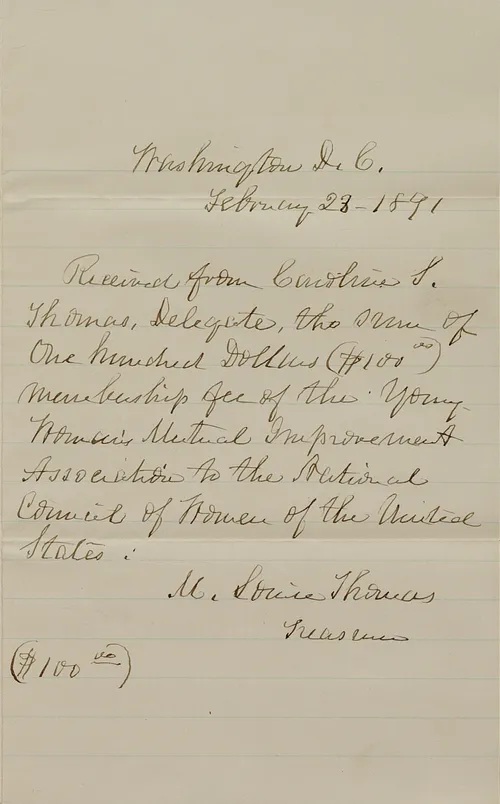 Washington D. C.
February 23 - 1891
Received from Caroline S.
Thomas, Delegate, the sum of
One hundred Dollars ($100 00)
membership fee of the Young
Woman's Mutual Improvement
Association to the National
Council of Women of the United
States :
M. Louise Thomas
Treasurer
($100 00)